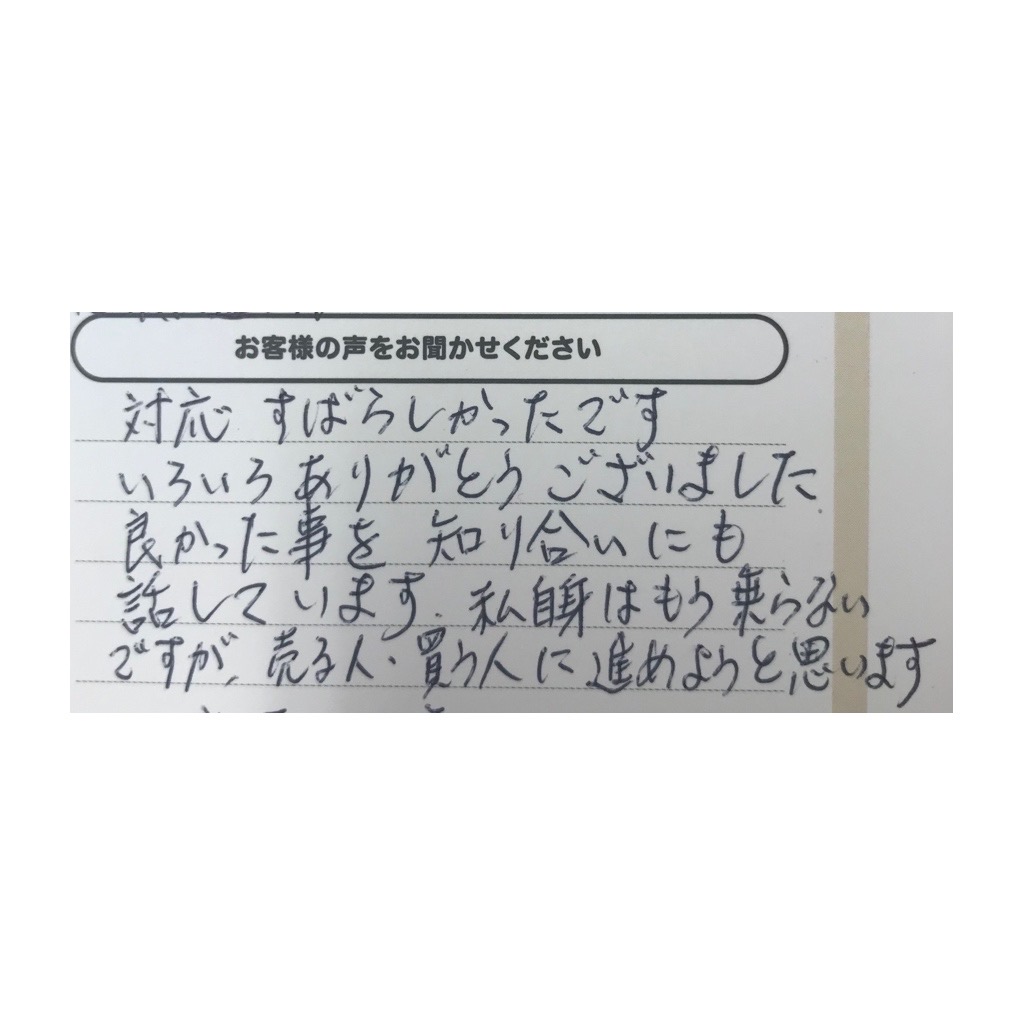 お客様の声をお聞かせください
対応 すばらしかったです
いろいろありがとうございました
良かった事を 知り合いにも
話しています. 私自身はもう乗らない
ですが、売る人・買う人に進めようと思います